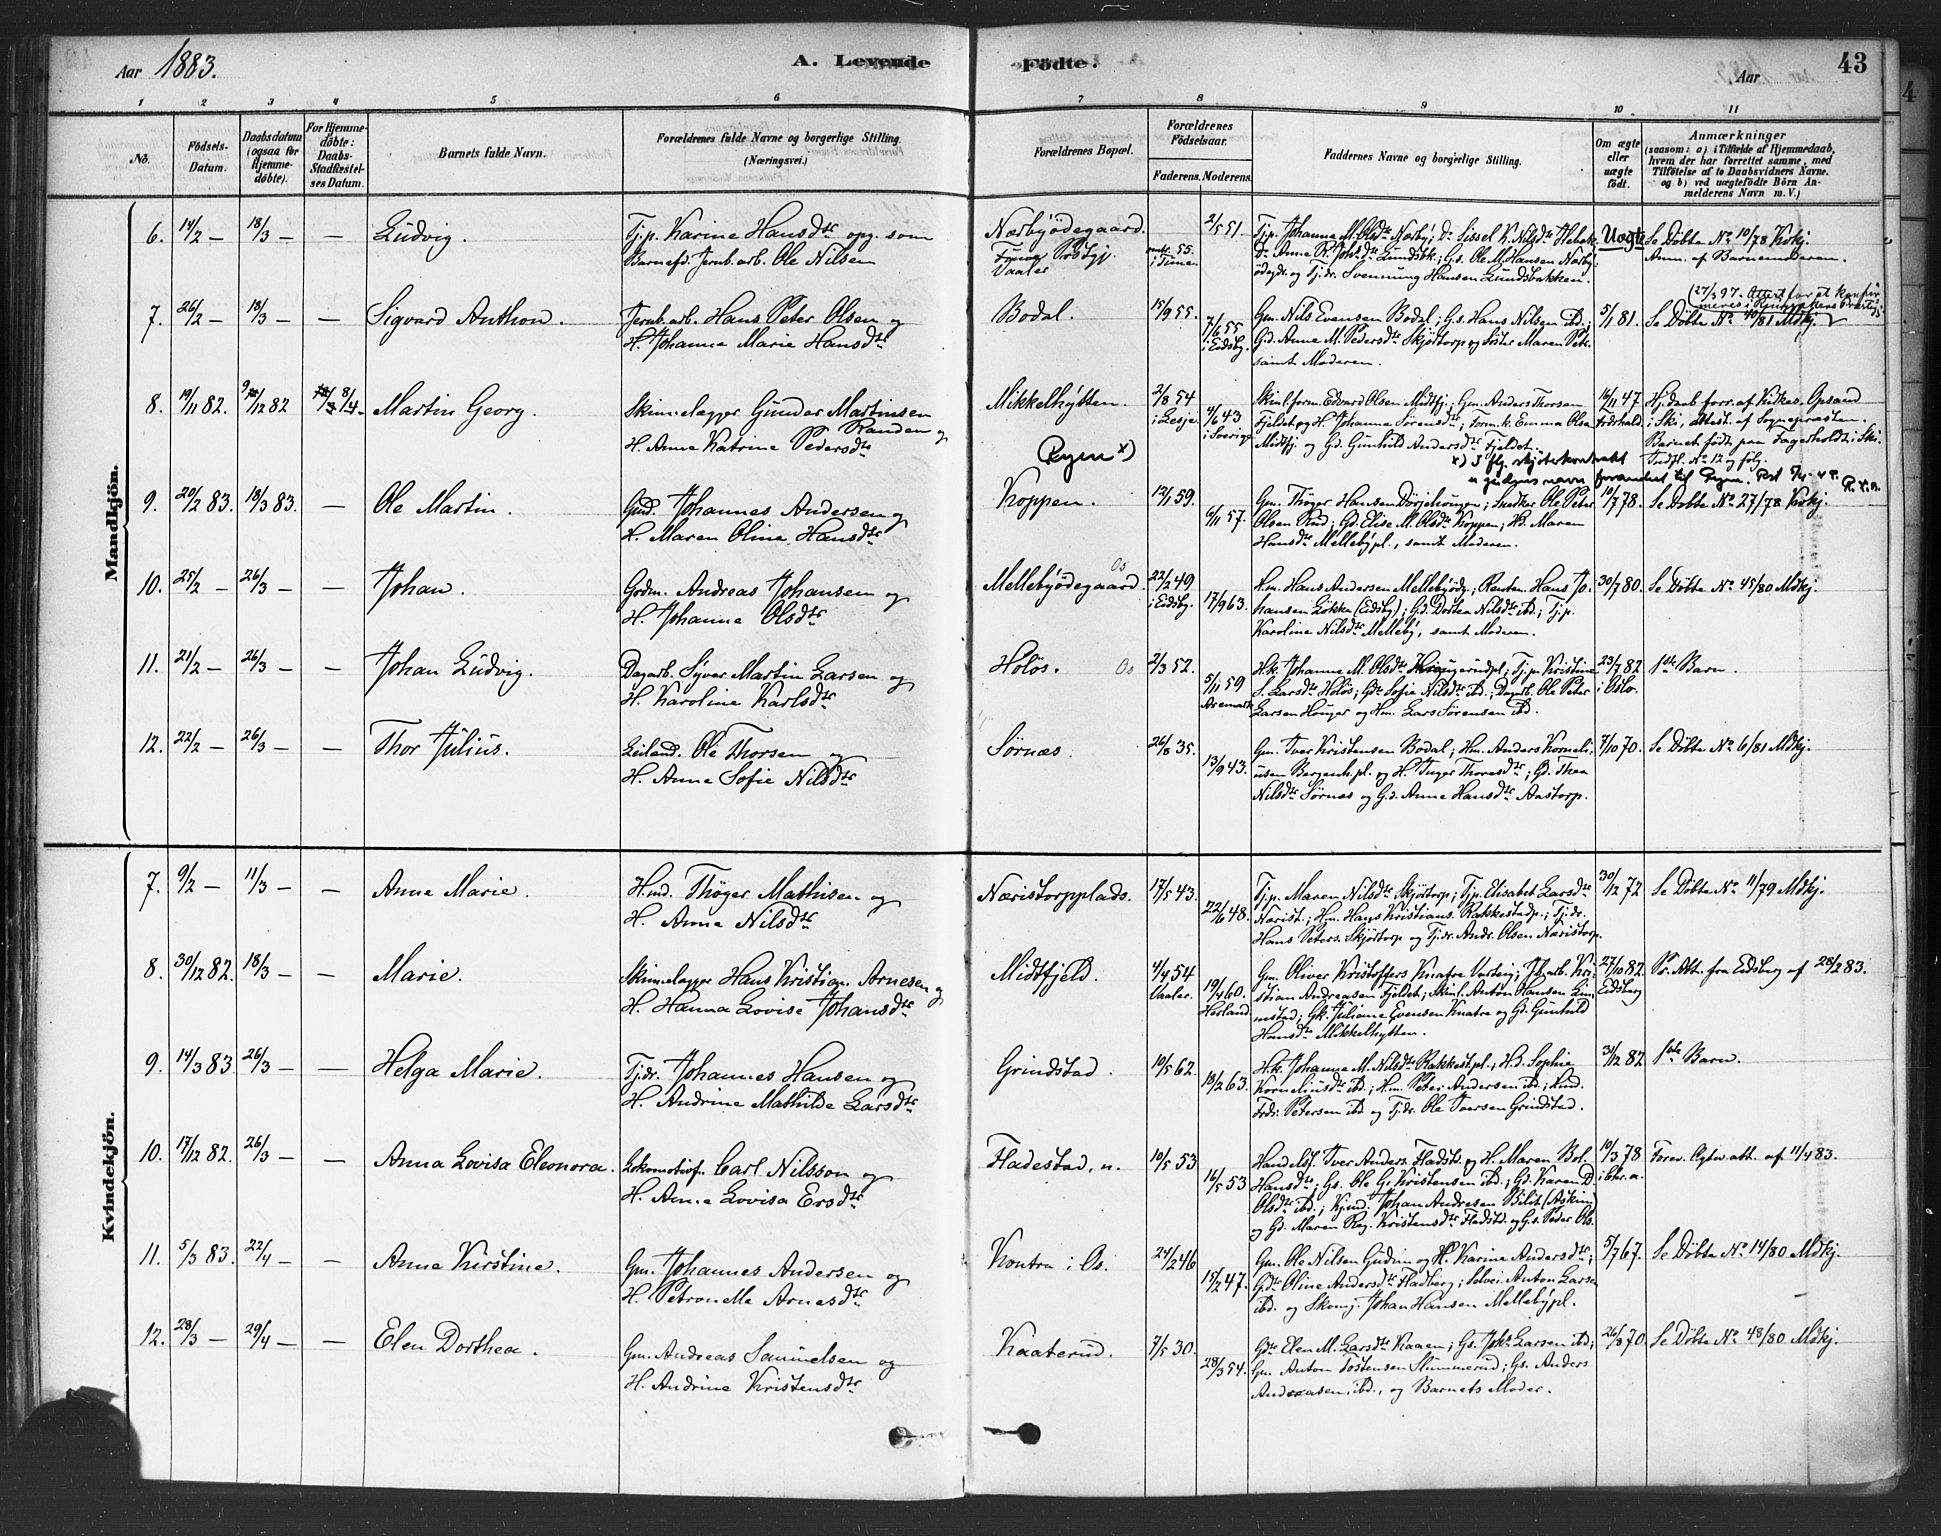 Aar 1883.
A. Levende Fødte.
Aar
43
1 2 3 4 5 6 7 8 9 10 11
No.
Fødsels-Datum.
Daabsdatum (ogsaa for Hjemmedøbte).
For Hjemmedøbte: Daabs-Stadfæstelses Datum.
Barnets fulde Navn.
Forældrenes fulde Navne og borgerlige Stilling. (Næringsvei.)
Forældrenes Bopæl.
Forældrenes Fødselsaar.
Faderens. Moderens.
Faddernes Navne og borgerlige Stilling.
Om ægte eller uægte født.
Anmærkninger
(saasom: a) i Tilfælde af Hjemmedaab, hvem der har forrettet samme, med Tilføielse af to Daabsvidners Navne. og b) ved uægtefødte Børn Anmelderens Navn m. V.)
Mandkjön.
6. 14/2 — 18/3 — — Ludvig. Tj.p. Karine Hansdtr opg. som
Barnefd. Jernb.arb. Ole Nilsen
Nærbyödegaard.
Vaaler
55. 2/5 51.
Tjp. Johanna M. Olsdtr Nærby; Do Sissel K. Nilsdtr Hebek
Do Anne R. Johsdtr Lundsbk.; Gs. Ole M. Hansen Nærby
ödegd. og Tj.dr. Svennung Hansen Lundsbakken.
Uægte Se Döbte No 10/78 Kvkj.
Anm. af Barnemoderen.
7. 26/2 — 18/3 — — Sigvard Anthon. Jernb.arb. Hans Peter Olsen og
H. Johanne Marie Hansdtr
Bodal. 15/9 55. 7/6 55 i Eidsbg.
Gm. Nils Evensen Bodal; G.s. Hans Nilsen ibd.;
Gd. Anne M. Pedersdtr Skjörtorp og Söster Maren Pet.
samt Moderen.
5/1 81. Se Döbte No 40/81 Mdkj.
8. 19/11 82. 9/12 82 8/4 — Martin Georg. Skinnelægger Gunder Martinsen
Randen og
H. Anne Katrine Pedersdtr
Mikkelhytten. 2/8 54 i Lesje 4/6 43 i Sverige
Skinl.form. Edvard Olsen Midtfj.; Gm. Anders Thorsen
Fjeldet og H. Johanne Sörensdtr; Form.k. Emma Olsen
Midtfj. og Gd. Gunhild Andersdtr Fjeldet.
16/11 47 Frdrhald.
Hj.daab forr. af Kirkes. Opsand
i Ski, attest. af Sognepresten.
Barnet födt paa Fagerholdt i Ski.
Indpl. No 12 og fölg.
Rygen x)
x) I flg. skjötekontrakt
er gaardens navn forandret til Rygen.
9. 20/2 83. 18/3 83. — Ole Martin. Gmd. Johannes Andersen og
H. Maren Oline Hansdtr
Koppen. 12/1 59. 6/11 57.
Gm. Thöger Hansen Dörjehougen; Snedker Ole Peter
Olsen Rud; Gd. Elise M. Olsdtr Koppen; Hd. Maren
Hansdtr Mellebypl., samt Moderen.
10/7 78. Se Döbte No 27/78 Kvkj.
10. 25/2 — 26/3 — — Johan. Grdm. Andreas Johansen og
H. Johanne Olsdtr
Os
Mellebyödegaard. 22/2 49 i Eidsbg. 17/9 63.
Hm. Hans Andersen Mellebyödg.; Renten. Hans Jo-
hansen Lökka (Eidsbg); Gd. Dortea Nilsdtr ibd.; Tj.p.
Karoline Nilsdtr Melleby, samt Moderen.
30/7 80. Se Döbte No 45/80 Mdkj.
11. 21/2 — 26/3 — — Johan Ludvig. Dagarb. Syver Martin Larsen og
H. Karoline Karlsdtr
Holös. Os 2/3 52. 5/11 59 Aremark
Hk. Johanne M. Olsdtr Haugerudpl.; Tj.p. Kristine
S. Larsdtr Holös; Gdtr Sofie Nilsdtr ibd.; Dagarb. Ole Peter
Larsen Houger og Hm. Lars Sörensen ibd.
23/7 82 i Oslo. 1ste Barn.
12. 22/2 — 26/3 — — Thor Julius. Leiland. Ole Thorsen og
H. Anne Sofie Nilsdtr
Sörnæs. 26/8 35. 13/9 43.
Gm. Iver Kristensen Bodal; Hm. Anders Korneli-
usen Bergenh.pl. og H. Inger Thorsdtr; Gd. Thea
Nilsdtr Sörnæs og Gd. Anne Hansdtr Aastorp.
7/10 70. Se Döbte No 6/81 Mdkj.
Kvindekjön.
7. 9/2 — 11/3 — — Anne Marie. Hmd. Thöger Mathisen og
H. Anne Nilsdtr
Næristorpplads. 17/5 43. 22/6 48.
Tj.p. Maren Nilsdtr Skjörtorp; Tjp. Elisabet Larsdtr
Nærist.; Hm. Hans Kristians. Rakkestadp.; Tj.dr.
Hans Peters. Skjörtorp og Tj.dr. Andr. Olsen Næristorp.
30/12 72 Se Döbte No 11/79 Mdkj.
8. 30/12 82. 18/3 — — Marie. Skinnelægger Hans Kristian Arnesen og
H. Hanna Lovise Johansdtr
Midtfjeld. 4/4 54 Vaaler. 19/4 60. Herland
Gm. Oliver Kristoffers. Knatre Varteig; Jb.arb. Kri-
stian Andreasen Fjeldet; Skinl. Anton Hansen Lun-
nestad; Gk. Juliane Evensen Knatre og Gd. Gunhild
Hansdtr Mikkelhytten.
27/10 82. Eidsberg Pr. Att. fra Eidsberg af 28/2 83.
9. 14/3 83. 26/3 — — Helga Marie. Tj.dr. Johannes Hansen og
H. Andrine Mathilde Larsdtr
Grindstad. 10/5 62. 18/2 63.
Hk. Johanne M. Nilsdtr Rakkest.pl.; Hd. Sophie
Korneliusdtr ibd.; Hm. Peter Andersen ibd.; Hmd.
Frdr. Petersen ibd. og Tj.dr. Ole Iversen Grindstad.
31/12 82 1ste Barn.
10. 17/12 82. 26/3 — — Anna Lovisa Eleonora. Lokomotivf. Carl Nilsson og
H. Anna Lovisa Ersdtr
Fladestad, n. 10/5 53 16/5 53
Handelsf. Iver Anders. Fladstd. og H. Maren Bol.
Hansdtr; Gs. Ole G. Kristensen ibd.; Gd. Karen D.
Olsdtr ibd.; Kjmd. Johan Andresen Blit (Askim)
og Gd. Maren Rag. Kristensdtr Fladstd. og G.s. Peder Ols.
10/3 78 i Chr.a. Forev. Ægtev. att. af 11/4 83.
11. 5/3 83. 22/4 — — Anna Kirstine. Gm. Johannes Andersen og
H. Petronelle Arnesdtr
Kontra i Os. 24/2 46 18/2 47.
Gm. Ole Nilsen Gudim og H. Karine Andersdtr;
Gdtr Oline Andersdtr Fladberg; Selvei. Anton Larsen
ibd. og Skomg. Johan Hansen Mellebypl.
5/7 67. Se Döbte No 14/80 Mdkj.
12. 28/3 — 29/4 — — Elen Dorthea. Gm. Andreas Samuelsen og
H. Andrine Kristensdtr
Kaaterud. 7/5 30. 28/3 54.
Gdtr Elen M. Larsdtr Kaaen; Gs. Johs Larsen ibd;
Gm. Anton Tostensen Slummerud; Gs. Anders
Andreasen ibd., og Barnets Moder.
26/8 70. Se Döbte No 48/80 Mdkj.